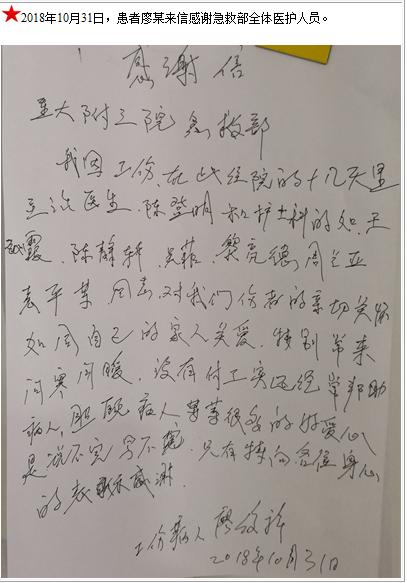 ★2018年10月31日，患者廖某来信感谢急救部全体医护人员。
感谢信
重大附三院急救部
我因工伤，在此住院的十几天里
主治医生，陈登明和护士科的如王
霞，陈静轩，吴菲，黎亮德，周兰亚
袁平等同志，对我们伤者的亲切关怀
如同自己的家人关爱，特别常来
问寒问暖，没有付工实际经常帮助
病人，照顾病人等等很多的好爱心
是说不完写不完，只有转向各位身心
的表示感谢。
工伤病人廖
2018年10月31日